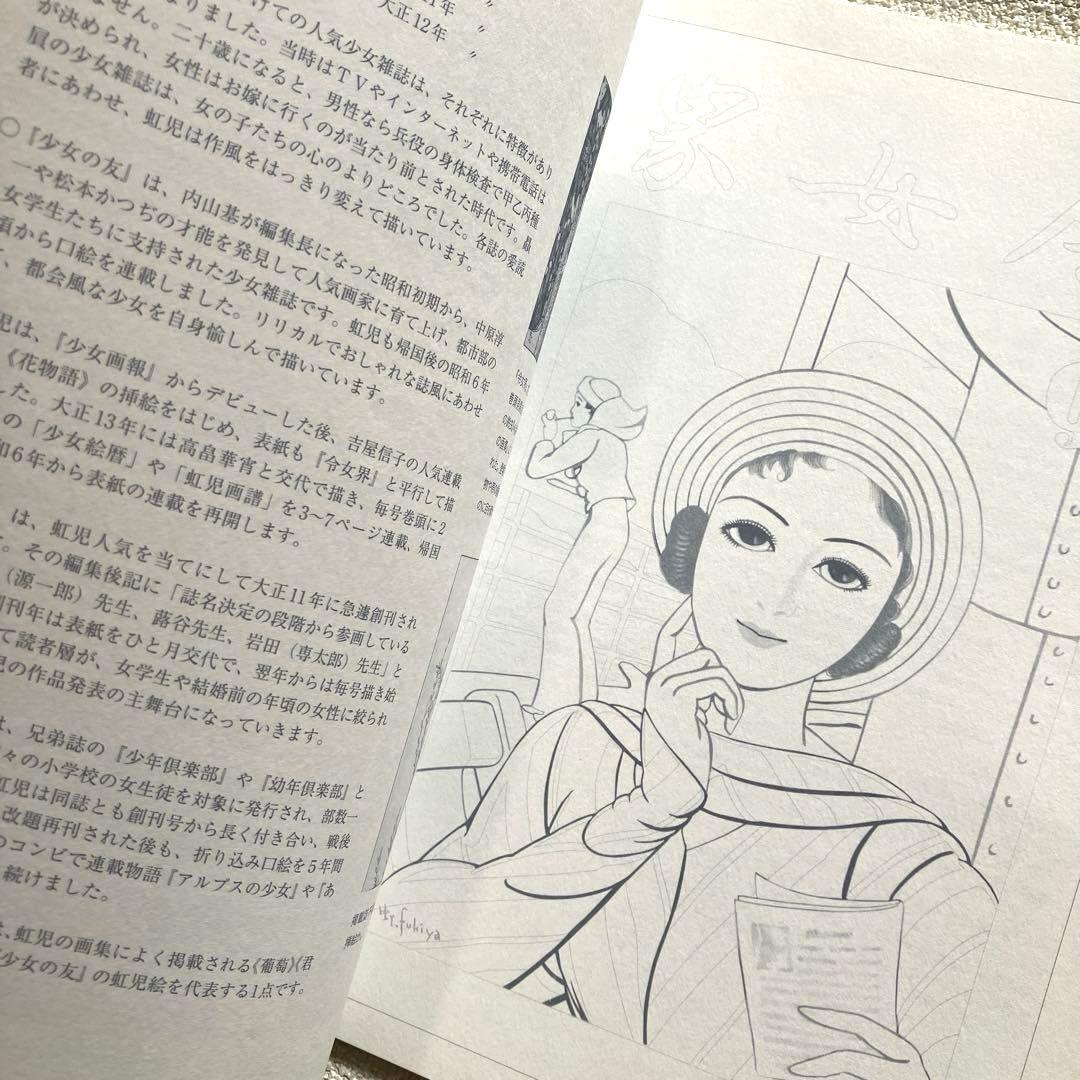 11年 〃
大正12年 〃
けての人気少女雑誌は、それぞれに特徴があり
なりました。当時はＴＶやインターネットや携帯電話は
ません。二十歳になると、男性なら兵役の身体検査で甲乙丙種
が決められ、女性はお嫁に行くのが当たり前とされた時代です。贔
屓の少女雑誌は、女の子たちの心のよりどころでした。各誌の愛読
者にあわせ、虹児は作風をはっきり変えて描いています。
○『少女の友』は、内山基が編集長になった昭和初期から、中原淳
一や松本かつぢの才能を発見して人気画家に育て上げ、都市部の
女学生たちに支持された少女雑誌です。虹児も帰国後の昭和６年
頃から口絵を連載しました。リリカルでおしゃれな誌風にあわせ
、都会風な少女を自身愉しんで描いています。
児は、『少女画報』からデビューした後、吉屋信子の人気連載
《花物語》の挿絵をはじめ、表紙も『令女界』と平行して描
した。大正13年には高畠華宵と交代で描き、毎号巻頭に２
の「少女絵暦」や「虹児画譜」を３〜７ページ連載、帰国
和６年から表紙の連載を再開します。
は、虹児人気を当てにして大正11年に急遽創刊され
。その編集後記に「誌名決定の段階から参画している
（源一郎）先生、蕗谷先生、岩田（専太郎）先生」と
刊年は表紙をひと月交代で、翌年からは毎号描き始
て読者層が、女学生や結婚前の年頃の女性に絞られ
児の作品発表の主舞台になっていきます。
は、兄弟誌の『少年倶楽部』や『幼年倶楽部』と
々の小学校の女生徒を対象に発行され、部数一
虹児は同誌とも創刊号から長く付き合い、戦後
改題再刊された後も、折り込み口絵を５年間
のコンビで連載物語『アルプスの少女』や『あ
続けました。
、虹児の画集によく掲載される《葡萄》《君
少女の友』の虹児絵を代表する１点です。
界女令
虹.fukiya